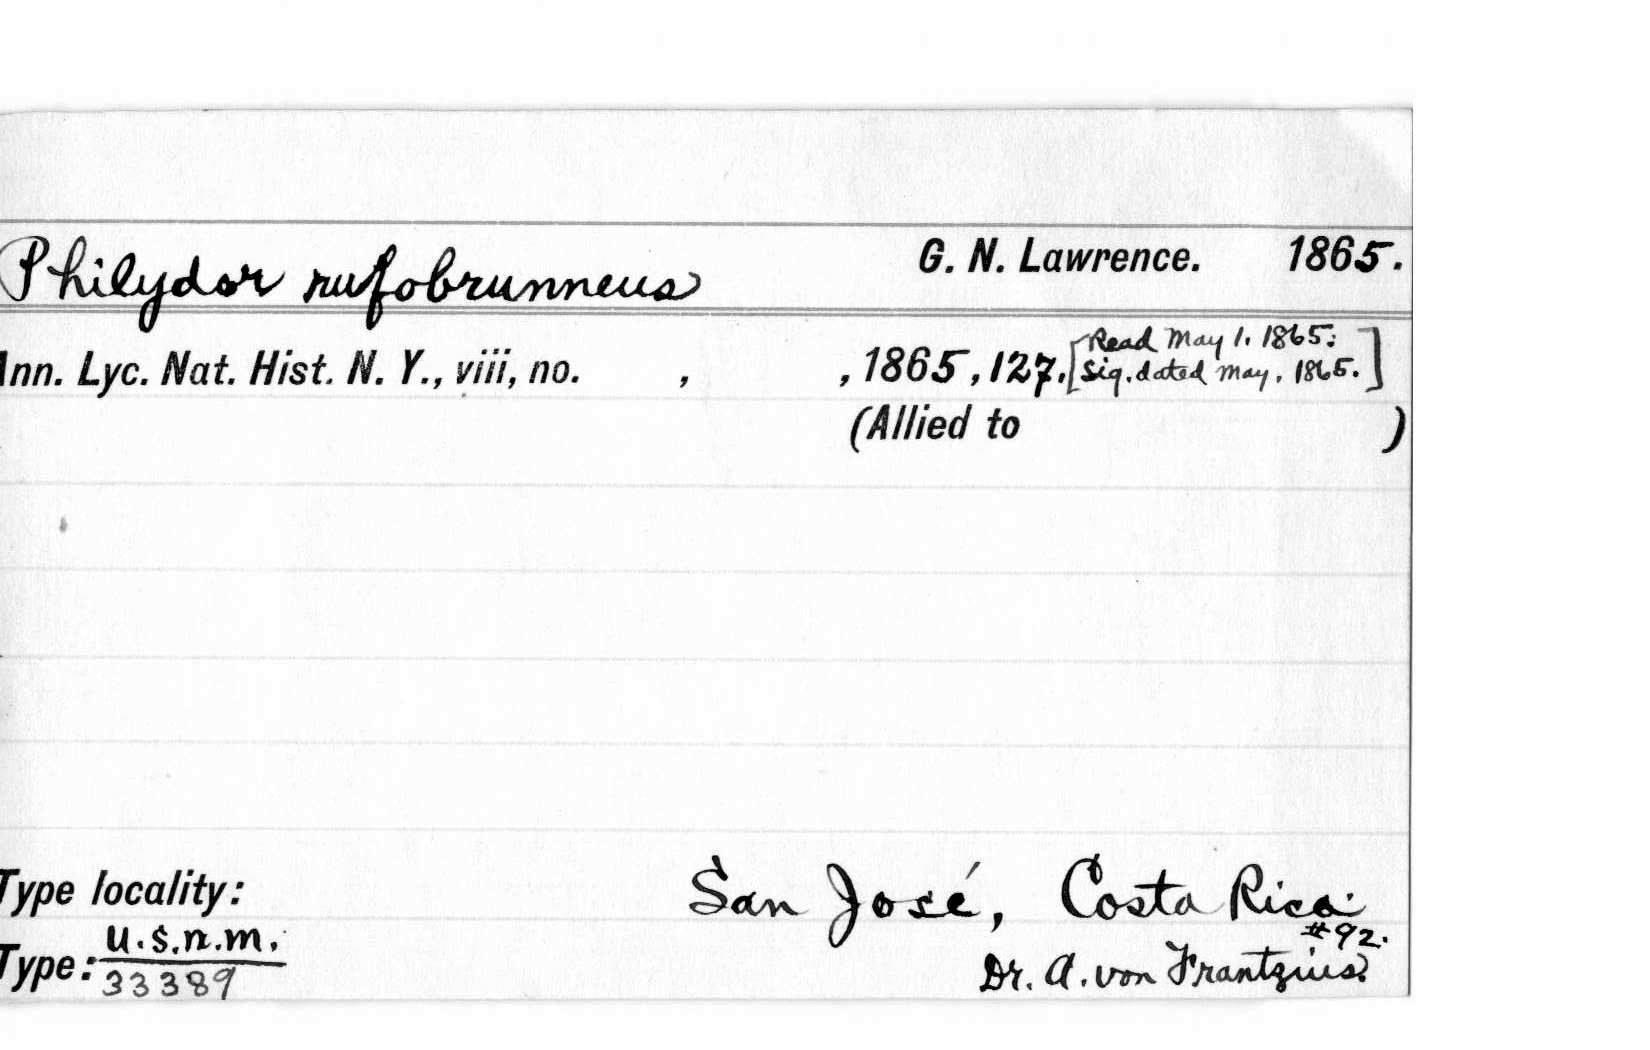 Philydor rufobrunneus G. N. Lawrence. 1865.
Ann. Lyc. Nat. Hist. N. Y., viii, no. , , 1865, 127. [Read May 1. 1865:
Sig. dated May. 1865.]
(Allied to )
Type locality: San José, Costa Rica.
#92.
Type: U.S.N.M. Dr. A. von Frantzius.
33389